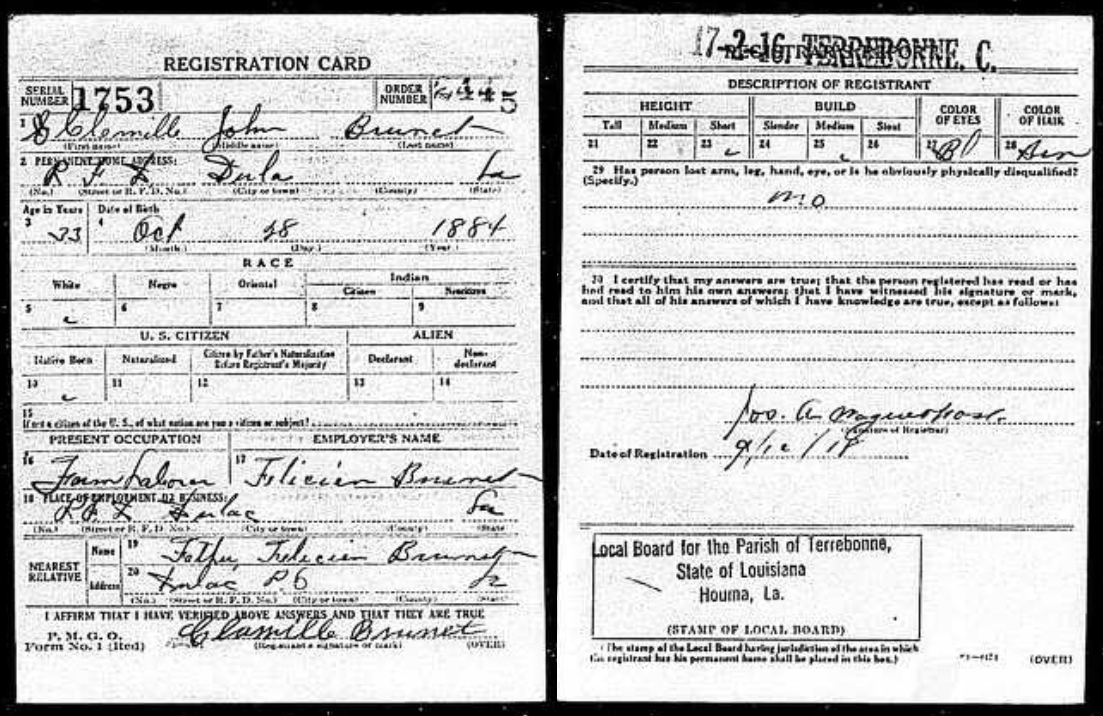 REGISTRATION CARD
SERIAL NUMBER 1753 ORDER NUMBER
1 Clamille John Brunet
(First name) (Middle name) (Last name)
2 PERMANENT HOME ADDRESS:
R F D Dula La
(No.) (Street or R. F. D. No.) (City or town) (County) (State)
Age in Years Date of Birth
3 33 4 Oct 28 1884
(Month) (Day) (Year)
RACE
White Negro Oriental Indian
Citizen Noncitizen
5 6 7 8 9
U. S. CITIZEN ALIEN
Native Born Naturalized Citizen by Father's Naturalization Before Registrant's Majority Declarant Non-declarant
10 11 12 13 14
15
If not a citizen of the U. S., of what nation are you a citizen or subject?
PRESENT OCCUPATION EMPLOYER'S NAME
16 Farm Laborer 17 Felicien Brunet
18 PLACE OF EMPLOYMENT OR BUSINESS:
Dulac La
(No.) (Street or R. F. D. No.) (City or town) (County) (State)
NEAREST RELATIVE
Name 19 Father, Felicien Brunet
Address 20 Dulac La
(No.) (Street or R. F. D. No.) (City or town) (County) (State)
I AFFIRM THAT I HAVE VERIFIED ABOVE ANSWERS AND THAT THEY ARE TRUE
P. M. G. O.
Form No. 1 (Red) Clamille Brunet
(Registrant's signature or mark) (OVER)
17-2-16. TERREBONNE, C.
DESCRIPTION OF REGISTRANT
HEIGHT BUILD COLOR OF EYES COLOR OF HAIR
Tall Medium Short Slender Medium Stout
21 22 23 24 25 26 27 Bl 28
29 Has person lost arm, leg, hand, eye, or is he obviously physically disqualified?
(Specify.)
no
30 I certify that my answers are true; that the person registered has read or has
had read to him his own answers; that I have witnessed his signature or mark,
and that all of his answers of which I have knowledge are true, except as follows:
Jos. A.
(Signature of Registrar)
Date of Registration 9/12/18
Local Board for the Parish of Terrebonne,
State of Louisiana
Houma, La.
(STAMP OF LOCAL BOARD)
(The stamp of the Local Board having jurisdiction of the area in which
the registrant has his permanent home shall be placed in this box.)
(OVER)